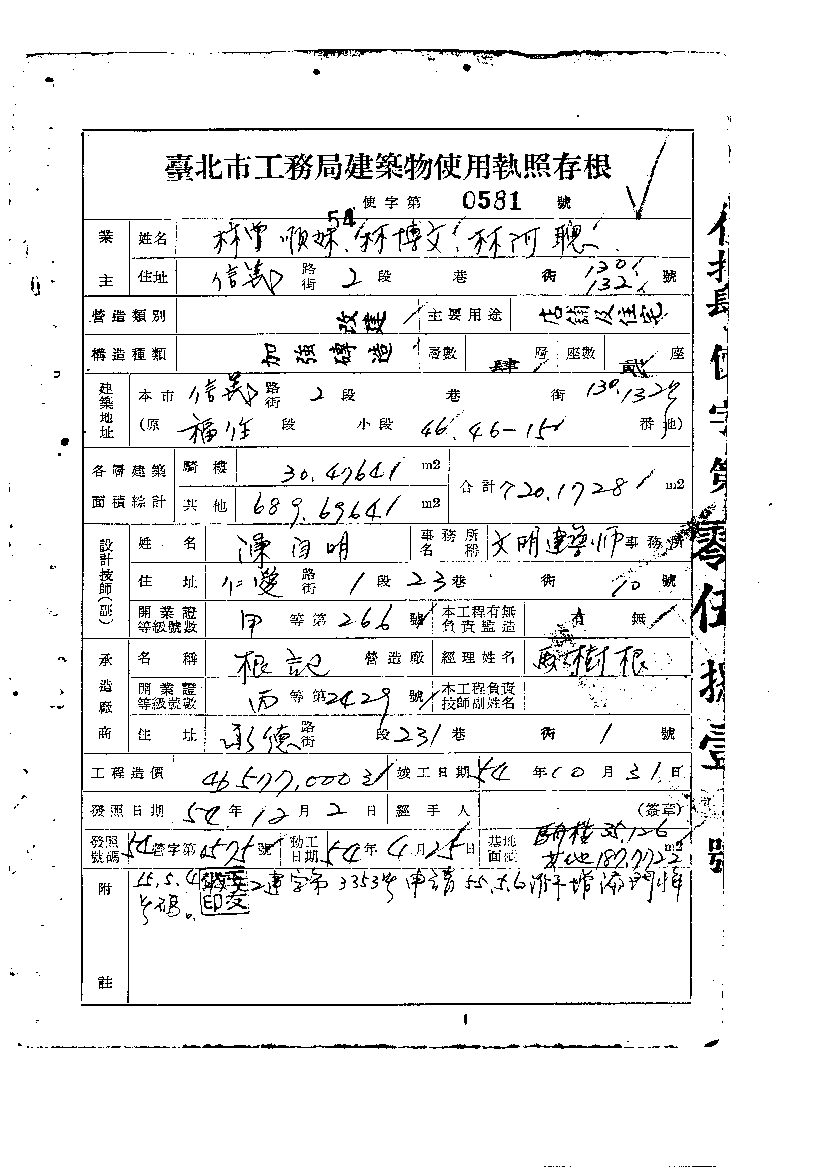 臺北市工務局建築物使用執照存根
54 使字第 0581 號
業主 姓名 林曾順妹、林博文、林阿聰
住址 信義 路街 2 段 巷 街 130 132 號
營造類別 改建 主要用途 店舖及住宅
構造種類 加強磚造 層數 肆 層 座數 貳 座
建築地址 本市 信義 路街 2 段 巷 街 130.132 號
(原 福住 段 小段 46.46-15 番地)
各層建築面積綜計 騎樓 30.4764 m2 合計 720.1728 m2
其他 689.6964 m2
設計技師(副) 姓名 陳自明 事務所名稱 文明建築師 事務所
住址 仁愛 路街 1 段 23 巷 街 10 號
開業證等級號數 甲 等第 266 號 本工程有無負責監造 有 無
承造廠商 名稱 根記 營造廠 經理姓名 樹根
開業證等級號數 丙 等第 2429 號 本工程負責技師副姓名
住址 承德 路街 段 231 巷 街 1 號
工程造價 竣工日期 54 年 10 月 31 日
發照日期 54 年 12 月 2 日 經手人 (簽章)
發照號碼 54 營字第 0575 號 動工日期 54 年 4 月 25 日 基地面積 騎樓 35.126 其他 187.7722 m2
附註 55.5.4 建字第3353號申請55.5.6 增添門牌
號碼。
伍拾肆使字第零伍捌壹號